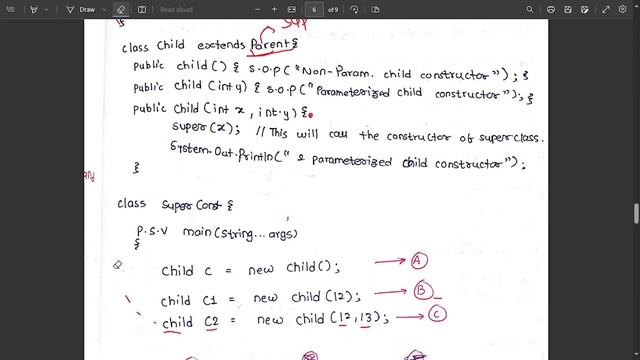 Draw
Read aloud
6
of 9
class Child extends Parent {
public child() { S.O.P ("Non-Param. child constructor"); }
public child (int y) { S.O.P ("Parameterized child constructor"); }
public child (int x, int y) {
super(x); // This will call the constructor of superclass.
System.Out.Println(" 2 parameterized child constructor");
}
class Super Const {
P.S.V main(String... args)
{
child c = new child(); → A
child C1 = new child (12); → B
child C2 = new child (12,13); → C